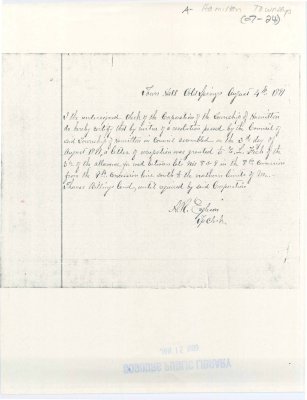 A- Hamilton Township
(07-24)
Town Hall Cold Springs August 4th 1891
I the undersigned Clerk of the Corporation of the Township of Hamilton
do hereby certify that by virtue of a resolution passed by the Council of
said Township of Hamilton in Council assembled on the 3rd day of
August 1891, a letter of was granted to E. L. of
the of the allowance for road between lots No 8 & 9 in the 8th Concession
from the 9th Concession line south to the northern limits of Mr.
Thomas Billings land, until required by said Corporation
Tp. Clerk
COBOURG PUBLIC LIBRARY